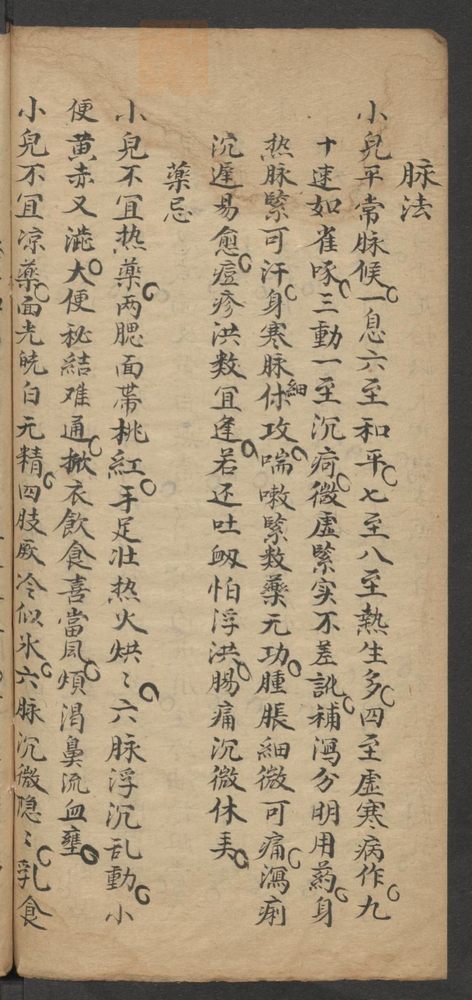 脉法
小兒平常脉候一息六至和平七至八至熱生多四至虛寒病作九
十速如雀啄三動一至沉疴微虛緊实不差訛補瀉分明用药身
热脉緊可汗身寒脉細休攻喘嗽緊数藥元功腫脹細微可痛瀉痢
沉遅易愈痘疹洪数冝逢若还吐衂怕浮洪腸痛沉微休美
藥忌
小兒不冝热藥两腮面帯桃紅手足壮热火烘〻六脉浮沉乱動小
便黄赤又澁大便秘結难通掀衣飲食喜當凮煩渴鼻流血壅
小兒不冝凉藥面光皖白元精四肢厥冷似氷六脉沉微隐〻乳食